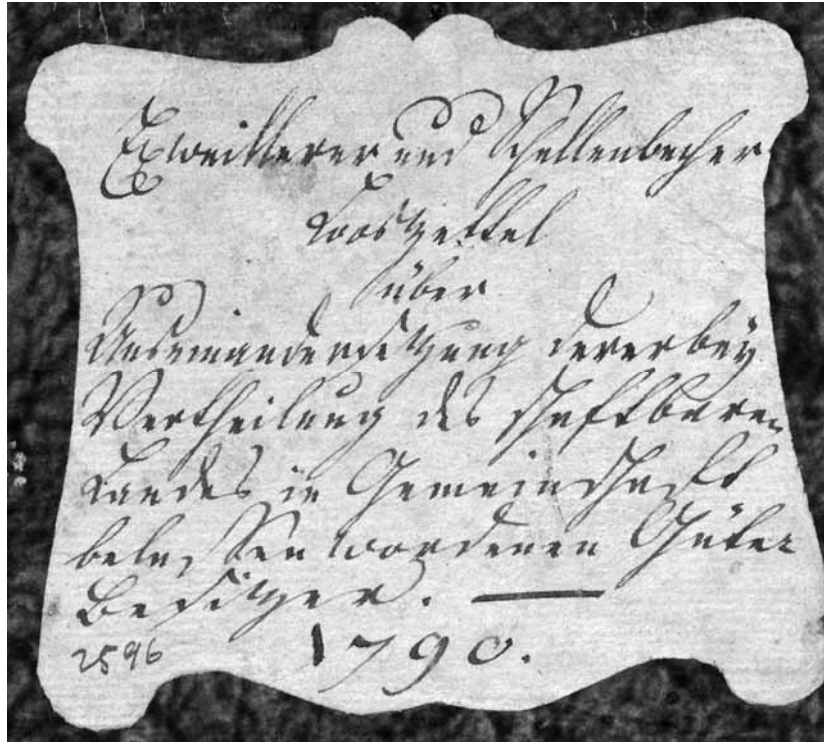 Exweillerer und Schellenbacher
Looszettel
über
Auseinandersetzung dererbey
Vertheilung des schaftbaren
Landes in Gemeinschaft
belassen wordenen Güter
Besitzer. —
2596 1790.